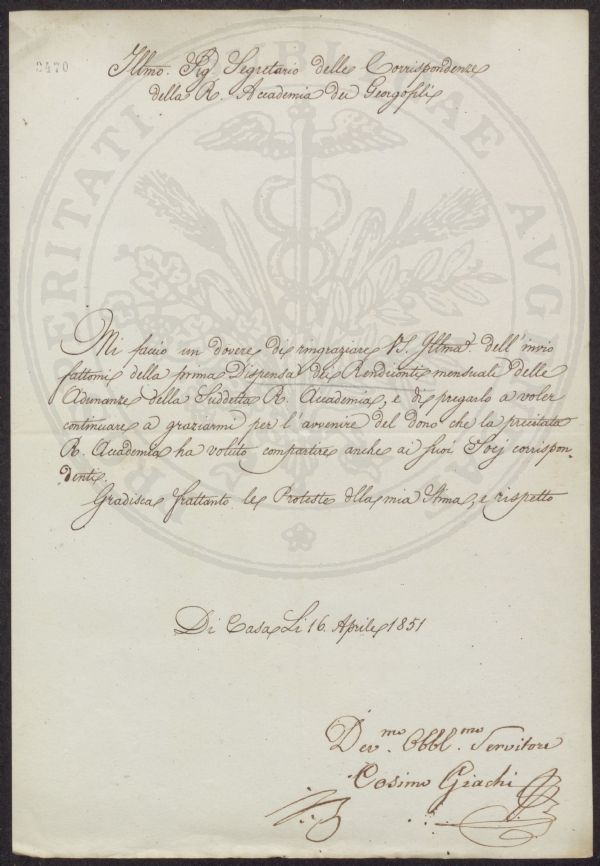 3470
Illmo. Sig Segretario delle Corrispondenze
della R. Accademia dei Georgofili
Mi faccio un dovere di ringraziare VS. Illma. dell'invio
fattomi della prima Dispensa dei Rendiconti mensuali delle
Adunanze della Suddetta R. Accademia, e di pregarlo a voler
continuare a graziarmi per l'avvenire del dono che la precitata
R. Accademia ha voluto compartire anche ai suoi Socj corrispon-
denti.
Gradisca frattanto le Proteste della mia stima, e rispetto
Di Casa Li 16. Aprile 1851
Dev.mo Obbl.mo Servitore
Cosimo Giachi
PROSPERITATI PUBLICAE AUG